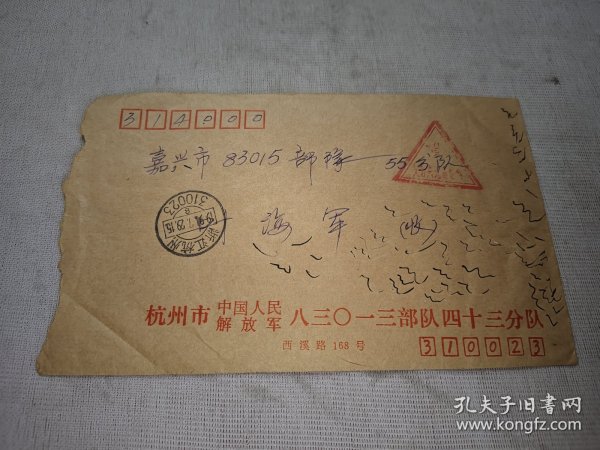 314000
嘉兴市 83015 部队 55分队
海军 收
310023
浙江杭州
杭州市 中国人民解放军 八三〇一三部队四十三分队
西溪路168号
310023
孔夫子旧书网
www.kongfz.com